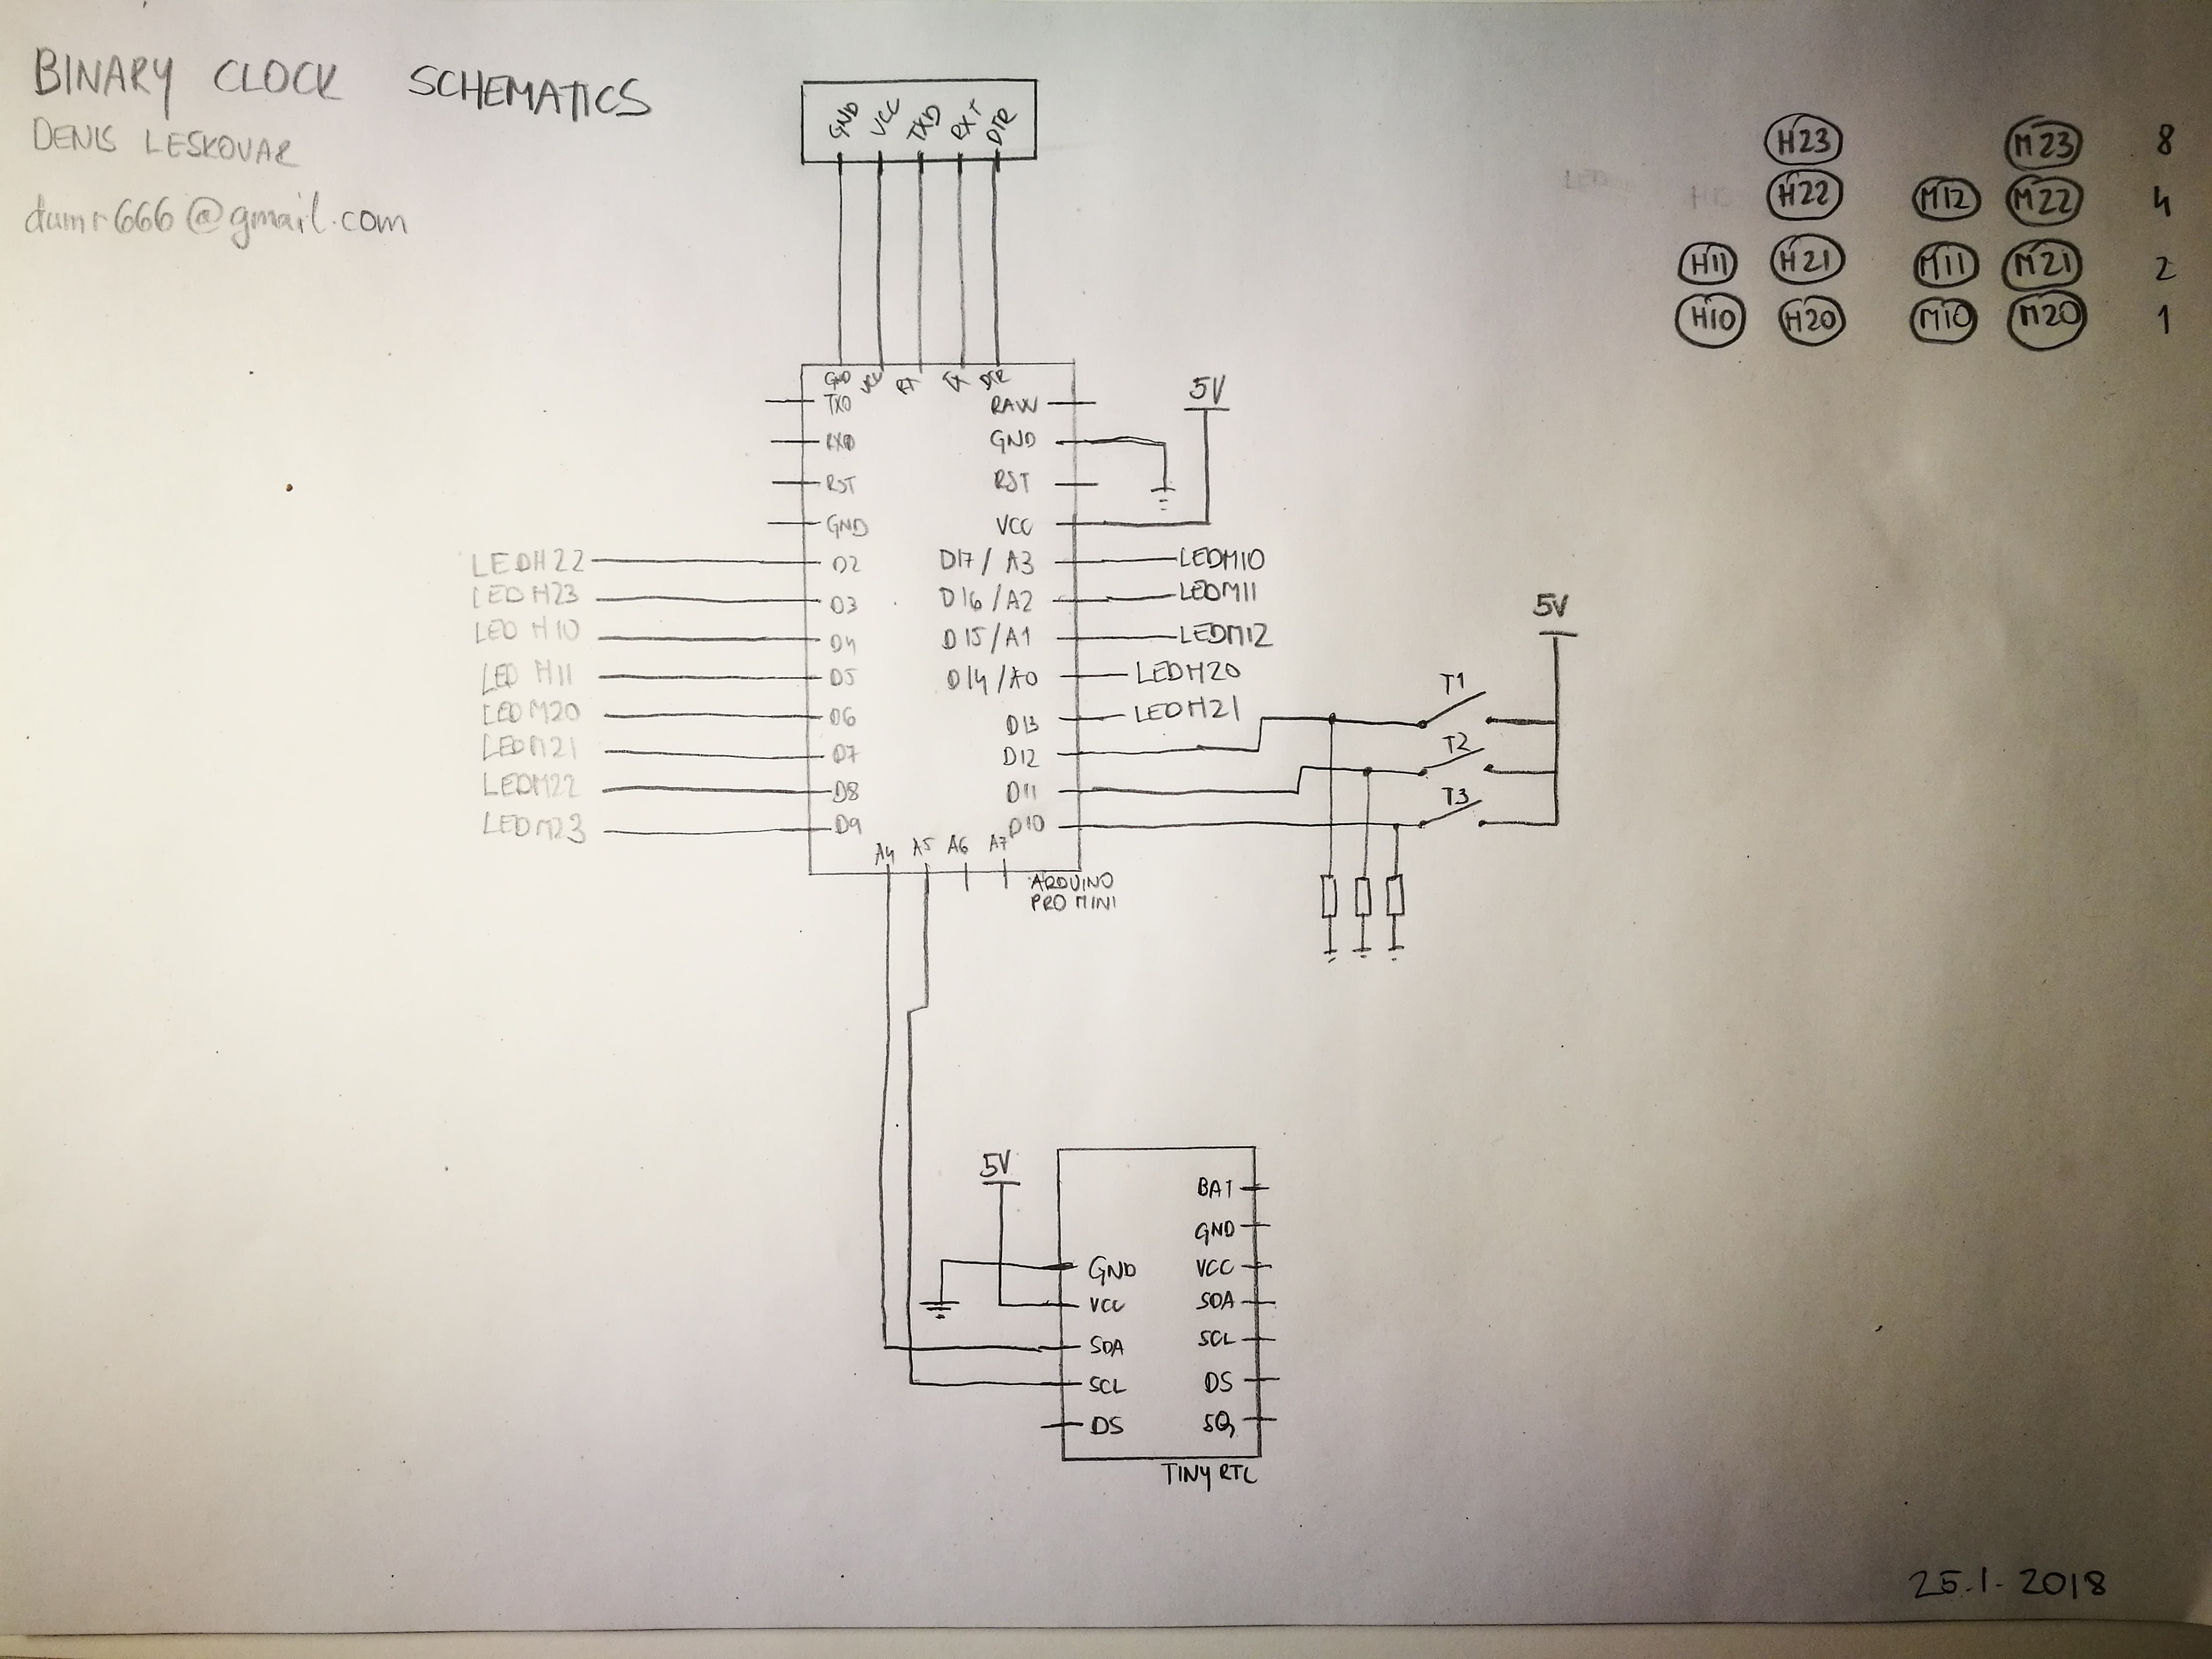 BINARY CLOCK SCHEMATICS
DENIS LESKOVAR
dumr666@gmail.com
GND VCC TXD RXT DTR
H23 M23 8
H22 M12 M22 4
H11 H21 M11 M21 2
H10 H20 M10 M20 1
GND VCC RX TX DTR
TXO RAW
RXO GND
RST RST
GND VCC
5V
LEDH22 D2 D17/A3 LEDM10
LEDH23 D3 D16/A2 LEDM11
LED H10 D4 D15/A1 LEDM12
LED H11 D5 D14/A0 LEDH20
LEDM20 D6 D13 LEDH21
LEDM21 D7 D12
LEDM22 D8 D11
LEDM23 D9 D10
A4 A5 A6 A7
ARDUINO
PRO MINI
5V
T1
T2
T3
5V
BAT
GND
GND VCC
VCC SDA
SDA SCL
SCL DS
DS SQ
TINY RTC
25.1.2018